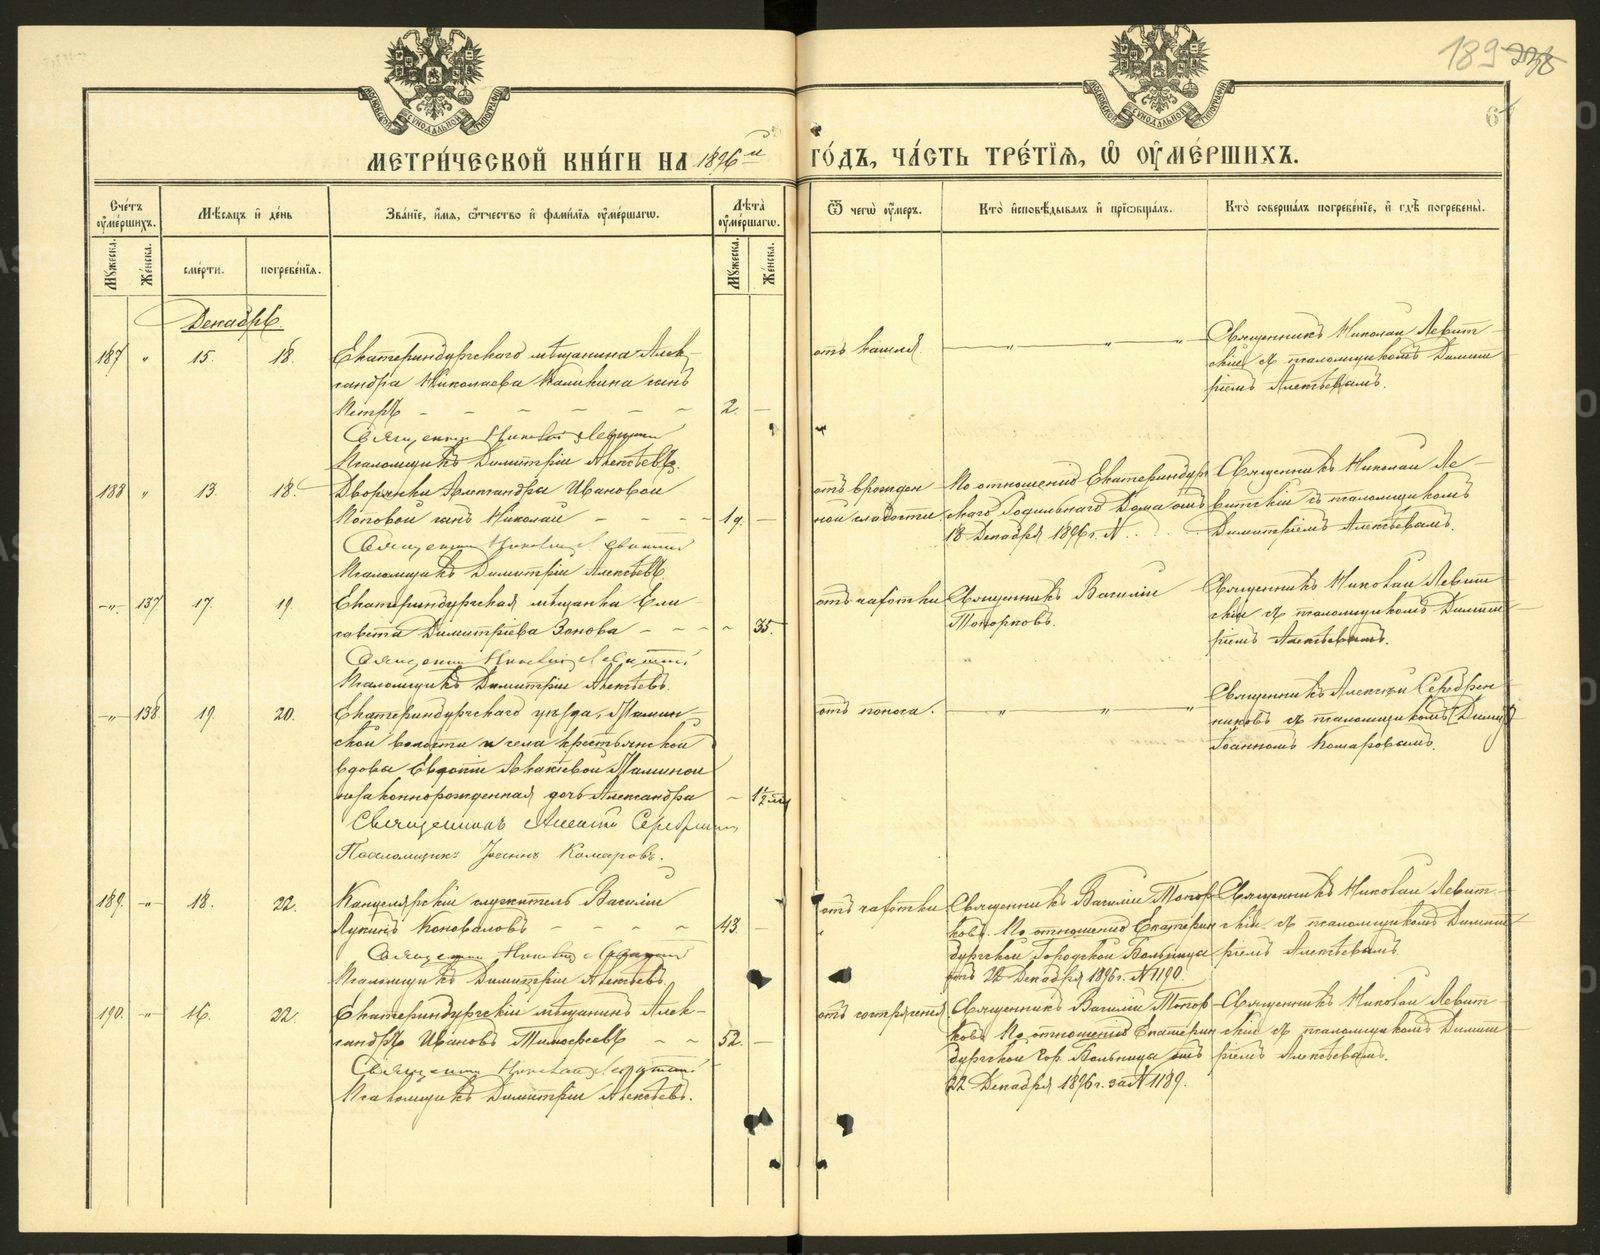 189
МЕТРИ́ЧЕСКОЙ КНИ́ГИ НА 1896 й ГО́ДЪ, ЧА́СТЬ ТРЕ́ТІѦ, Ѽ ОУ҆МЕ́РШИХЪ.
Сче́тъ оу҆ме́ршихъ.
Мѣ́сяцъ и де́нь
Зва́ніе, и҆́мя, о҆́тчество и҆ фами́лія оу҆ме́ршагѡ.
Лѣ́та оу҆ме́ршагѡ.
Ѿ чегѡ̀ оу҆́меръ.
Кто̀ и҆сповѣ́дывалъ и҆ прїѡбща́лъ.
Кто̀ соверша́лъ погребе́нїе, и҆ гдѣ̀ погребены̀.
Мꙋ́жеска.
Же́нска.
сме́рти.
погребе́нїя.
Мꙋ́жеска.
Же́нска.
Декабрь.
187 " 15. 18.
Екатеринбургскаго мѣщанина Алек-
сандра Николаева Каликина сынъ
Петръ - - - - - - 2. —
Священник Николай Левитский
Псаломщикъ Димитрій Алексѣевъ.
отъ кашля
— " — " — "
Священникъ Николай Левит-
скій съ псаломщикомъ Димит-
ріемъ Алексѣевымъ.
188 " 13. 18.
Дворянки Александры Ивановой
Поповой сынъ Николай - - - - 1 д. —
Священник Николай Левитский
Псаломщикъ Димитрій Алексѣевъ
отъ врожден
ной слабости
По отношению Екатеринбург
скаго Родильнаго Дома отъ
18 Декабря 1896 г. N...
Священникъ Николай Ле-
витскій съ псаломщикомъ
Димитріемъ Алексѣевымъ.
-"- 137 17. 19.
Екатеринбургская мѣщанка Ели-
савета Димитріева Зонова - - - - 35.
Священник Николай Левитский
Псаломщикъ Димитрій Алексѣевъ.
отъ чахотки
Священникъ Василій
Топорковъ.
Священникъ Николай Левит-
скій съ псаломщикомъ Димит-
ріемъ Алексѣевымъ.
-"- 138. 19. 20.
Екатеринбургскаго уѣзда,
ской волости и села крестьянской
вдовы
незаконнорожденная дочь Александра
Священникъ Алексій
Псаломщикъ Іоаннъ Комаровъ.
отъ поноса.
— " — " — "
Священникъ Алексѣй Серебрен-
никовъ съ псаломщикомъ
Іоанномъ Комаровымъ.
189. -"- 18. 22.
Канцелярскій служитель Василій
Лукинъ Коноваловъ - - - - 43. —
Священник Николай Левитский
Псаломщикъ Димитрій Алексѣевъ
отъ чахотки
Священникъ Василій Топор
ковъ. По отношению Екатерин
бургской Городской Больницы
отъ 22 Декабря 1896 г. N 1190
Священникъ Николай Левит-
скій съ псаломщикомъ Димит-
ріемъ Алексѣевымъ
190. -"- 16. 22.
Екатеринбургскій мѣщанинъ Алек-
сандръ Ивановъ Тимофеевъ - - 52. —
Священник Николай Левитский
Псаломщикъ Димитрій Алексѣевъ.
отъ сотрясения
Священникъ Василій Топор
ковъ. По отношению Екатерин
бургской Гор. Больницы отъ
22 Декабря 1896 г. за N 1189.
Священникъ Николай Левит-
скій съ псаломщикомъ Димит-
ріемъ Алексѣевымъ.